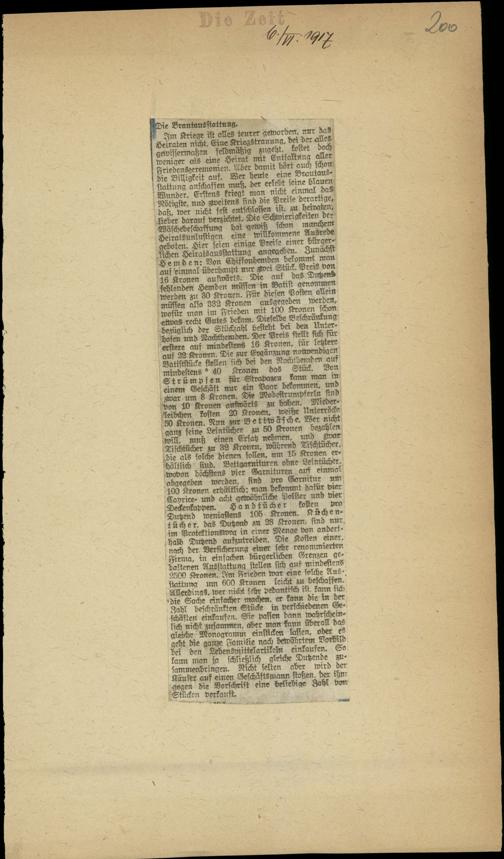 Die Zeit
6./VI. 1917
200
Die Brautausstattung.
Im Kriege ist alles teurer geworden, nur das
Heiraten nicht. Eine Kriegstrauung, bei der alles
gewissermaßen feldmäßig zugeht, kostet doch
weniger als eine Heirat mit Entfaltung aller
Friedenszeremonien. Aber damit hört auch schon
die Billigkeit auf. Wer heute eine Brautaus-
stattung anschaffen muß, der erlebt seine blauen
Wunder. Erstens kriegt man nicht einmal das
Nötigste, und zweitens sind die Preise derartige,
daß, wer nicht fest entschlossen ist, zu heiraten,
lieber darauf verzichtet. Die Schwierigkeiten der
Wäschebeschaffung hat gewiß schon manchem
Heiratsunlustigen eine willkommene Ausrede
geboten. Hier seien einige Preise einer bürger-
lichen Heiratsausstattung angegeben. Zunächst
Hemden: Von Chiffonhemden bekommt man
auf einmal überhaupt nur zwei Stück, Preis von
16 Kronen aufwärts. Die auf das Dutzend
fehlenden Hemden müssen in Batist genommen
werden zu 30 Kronen. Für diesen Posten allein
müssen also 332 Kronen ausgegeben werden,
wofür man im Frieden mit 100 Kronen schon
etwas recht Gutes bekam. Dieselbe Beschränkung
bezüglich der Stückzahl besteht bei den Unter-
hosen und Nachthemden. Der Preis stellt sich für
erstere auf mindestens 16 Kronen, für letztere
auf 22 Kronen. Die zur Ergänzung notwendigen
Batiststücke stellen sich bei den Nachthemden auf
mindestens 40 Kronen das Stück. Von
Strümpfen für Strapazen kann man in
einem Geschäft nur ein Paar bekommen, und
zwar um 8 Kronen. Die Modestrumpferln sind
von 10 Kronen aufwärts zu haben. Mieder-
leibchen kosten 20 Kronen, weiße Unterröcke
50 Kronen. Nun zur Bettwäsche. Wer nicht
ganz feine Leintücher zu 50 Kronen bezahlen
will, muß einen Ersatz nehmen, und zwar
Tischtücher zu 32 Kronen, während Tischtücher,
die als solche dienen sollen, um 15 Kronen er-
hältlich sind. Bettgarnituren ohne Leintücher,
wovon höchstens vier Garnituren auf einmal
abgegeben werden, sind pro Garnitur um
100 Kronen erhältlich; man bekommt dafür vier
Caprice- und acht gewöhnliche Polster und vier
Deckenkappen. Handtücher kosten pro
Dutzend wenigstens 105 Kronen. Küchen-
tücher, das Dutzend zu 28 Kronen, sind nur
im Protektionsweg in einer Menge von andert-
halb Dutzend aufzutreiben. Die Kosten einer,
nach der Versicherung einer sehr renommierten
Firma, in einfachen bürgerlichen Grenzen ge-
haltenen Ausstattung stellen sich auf mindestens
2500 Kronen. Im Frieden war eine solche Aus-
stattung um 600 Kronen leicht zu beschaffen.
Allerdings, wer nicht sehr pedantisch ist, kann sich
die Sache einfacher machen, er kann die in der
Zahl beschränkten Stücke in verschiedenen Ge-
schäften einkaufen. Sie passen dann wahrschein-
lich nicht zusammen, aber man kann überall das
gleiche Monogramm einsticken lassen, oder es
geht die ganze Familie nach bewährtem Vorbild
bei den Lebensmittelartikeln einkaufen. So
kann man ja schließlich gleiche Dutzende zu-
sammenbringen. Nicht selten aber wird der
Käufer auf einen Geschäftsmann stoßen, der ihm
gegen die Vorschrift eine beliebige Zahl von
Stücken verkauft.